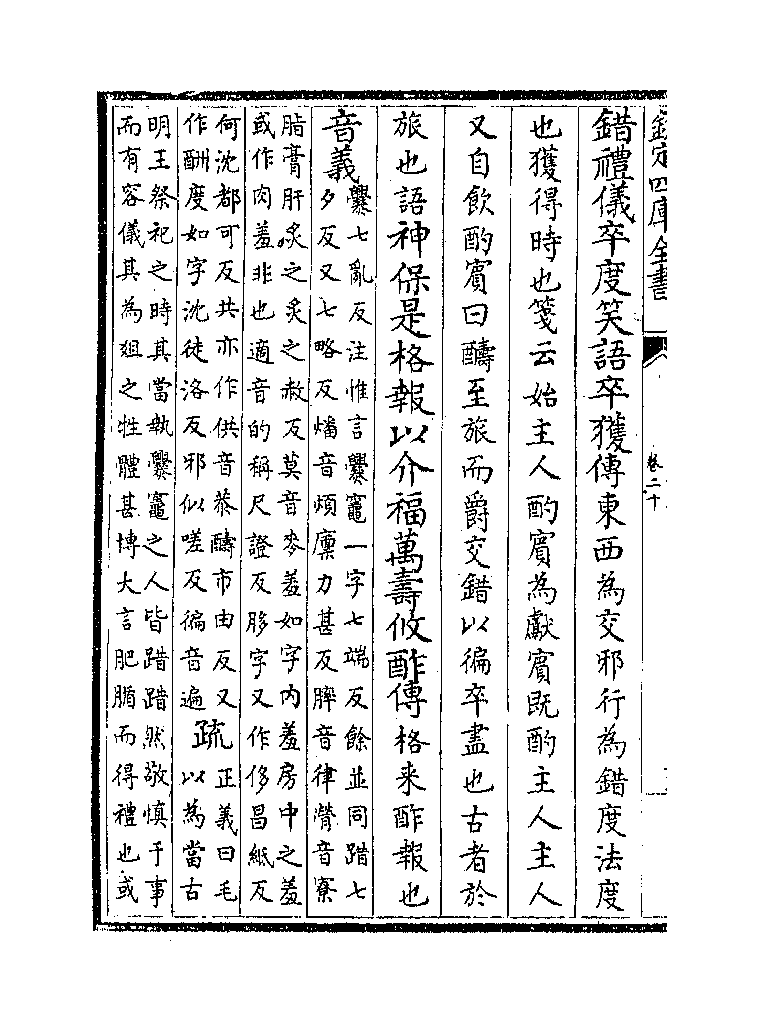 欽定四庫全書
卷二十
錯禮儀卒度笑語卒獲傳東西為交邪行為錯度法度
也獲得時也箋云始主人酌賔為獻賔既酌主人主人
又自飲酌賔曰醻至旅而爵交錯以徧卒盡也古者於
旅也語神保是格報以介福萬壽攸酢傳格来酢報也
音義爨七亂反注惟言爨竈一字七端反餘並同踖七
夕反又七略反燔音煩廩力甚反膟音律膋音寮
脂膏肝炙之炙之赦反莫音麥羞如字内羞房中之羞
或作肉羞非也適音的稱尺證反胗字又作侈昌紙反
何沈都可反共亦作供音恭醻市由反又
作酬度如字沈徒洛反邪似嗟反徧音遍
疏正義曰毛
以為當古
明王祭祀之時其當執爨竈之人皆踖踖然敬慎于事
而有容儀其為俎之牲體甚博大言肥腯而得禮也或